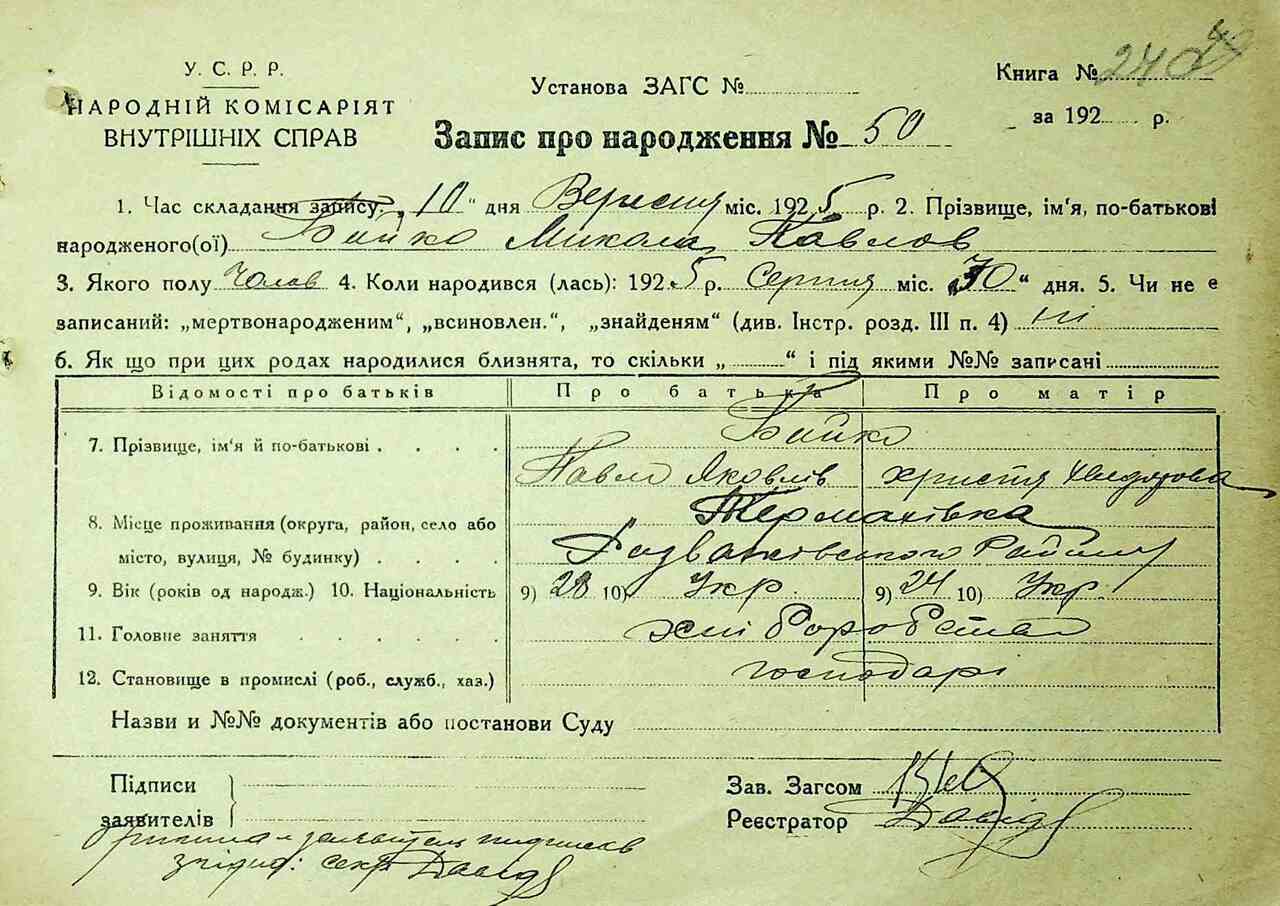 У. С. Р. Р.
НАРОДНІЙ КОМІСАРІЯТ
ВНУТРІШНІХ СПРАВ
Установа ЗАГС №
Запис про народження № 50
Книга № 240
за 192 р.
1. Час складання запису: „10“ дня Вересня міс. 1925 р. 2. Прізвище, ім'я, по-батькові
народженого(ої) Бийко Микола Павлов
3. Якого полу Чолов 4. Коли народився (лась): 1925 р. Серпня міс. „30“ дня. 5. Чи не є
записаний: „мертвонародженим“, „всиновлен.“, „знайденям“ (див. Інстр. розд. III п. 4) ні
6. Як що при цих родах народилися близнята, то скільки „ “ і під якими №№ записані
Відомості про батьків Про батька Про матір
7. Прізвище, ім'я й по-батькові . . . . Бийко
Павло Яковлів христя
8. Місце проживання (округа, район, село або Термахівка
місто, вулиця, № будинку) . . . . Розважівського Району
9. Вік (років од народж.) 10. Національність 9) 28 10) Укр. 9) 24 10) Укр.
11. Головне заняття . . . . . . хліборобство
12. Становище в промислі (роб., служб., хаз.) господарі
Назви и №№ документів або постанови Суду
Підписи
заявителів
Зав. Загсом
Реєстратор
згідно: секр.